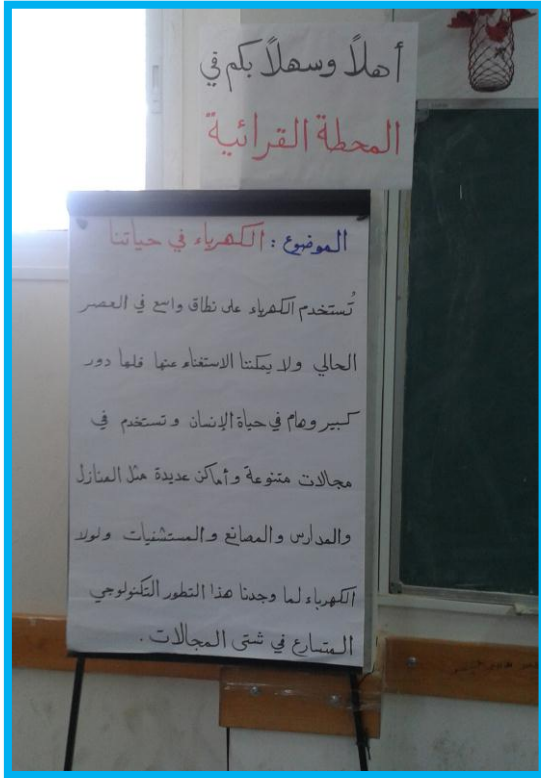 أهلاً وسهلاً بكم في
المحطة القرائية
الموضوع : الكهرباء في حياتنا
تُستخدم الكهرباء على نطاق واسع في العصر
الحالي ولا يمكننا الاستغناء عنها فلها دور
كبير وهام في حياة الإنسان وتستخدم في
مجالات متنوعة وأماكن عديدة مثل المنازل
والمدارس والمصانع والمستشفيات ولولا
الكهرباء لما وجدنا هذا التطور التكنولوجي
المتسارع في شتى المجالات .